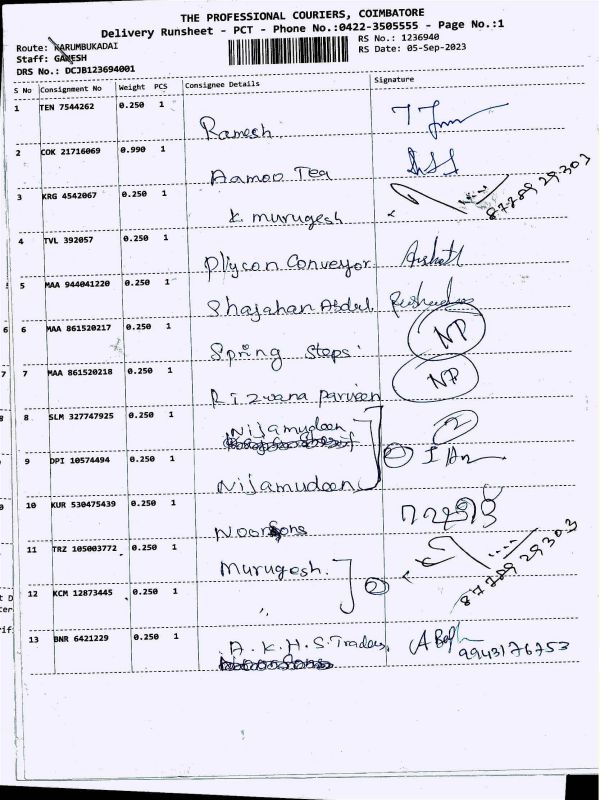 THE PROFESSIONAL COURIERS, COIMBATORE
Delivery Runsheet - PCT - Phone No.:0422-3505555 - Page No.:1
Route: KARUMBUKADAI
RS No.: 1236940
Staff: GANESH
RS Date: 05-Sep-2023
DRS No.: DCJB123694001
S No Consignment No Weight PCS Consignee Details Signature
1 TEN 7544262 0.250 1
Ramesh
2 COK 21716069 0.990 1
Aamoo Tea
3 KRG 4542067 0.250 1
K. Murugesh 87789 29303
4 TVL 392057 0.250 1
Plycon Conveyor
5 MAA 944041220 0.250 1
Shajahan Abdul
6 6 MAA 861520217 0.250 1
Spring Steps NP
7 7 MAA 861520218 0.250 1
Rizwana Parveen NP
8 SLM 327747925 0.250 1
Nijamudeen 2
9 DPI 10574494 0.250 1
Nijamudeen
10 KUR 530475439 0.250 1
Noor Sons
11 TRZ 105003772 0.250 1
Murugesh. 87789 29303
12 KCM 12873445 0.250 1
" 2
13 BNR 6421229 0.250 1
A.K.H.S. Traders 9943176753